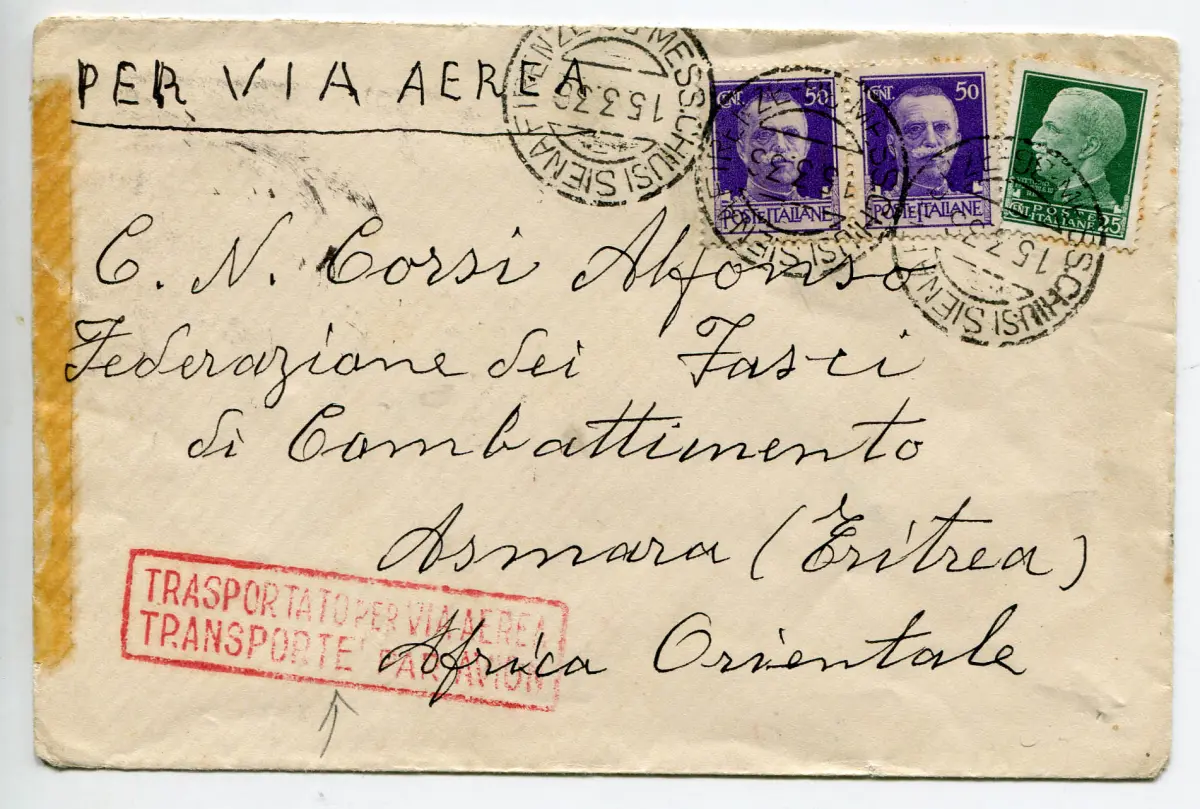 PER VIA AEREA
MESS.CHIUSI SIENA FIRENZE
15.3.36
CNT. 50
POSTE ITALIANE
CENT. 50
POSTE ITALIANE
POSTE
ITALIANE 25
MESS.CHIUSI SIENA
15.3.36
C. N. Corsi Alfonso
Federazione dei Fasci
di Combattimento
Asmara (Eritrea)
Africa Orientale
TRASPORTATO PER VIA AEREA
TRANSPORTE' PAR AVION